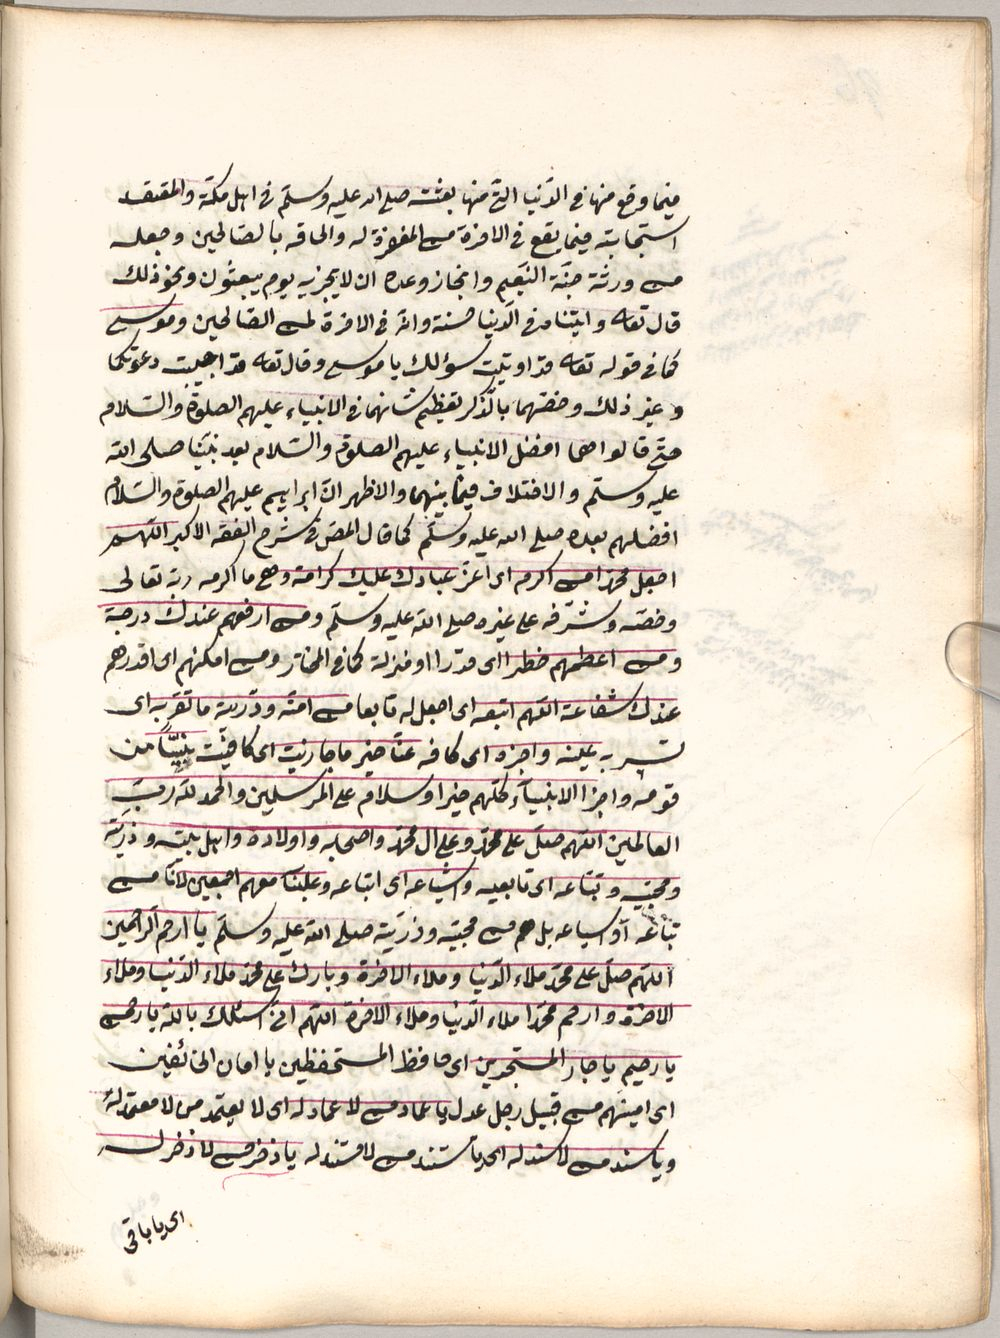 فيما وقع منها في الدنيا التي منها بعثته صلى الله عليه وسلم في اهل مكة والمقتضى
استجابته فيما يقع في الاخرة من المغفرة له والحاقه بالصالحين وجعله
من ورثة جنة النعيم وانجاز وعده ان لا يخزيه يوم يبعثون ونحو ذلك
قال تعالى واتيناه في الدنيا حسنة وانه في الاخرة لمن الصالحين وموسى
كما في قوله تعالى قد اوتيت سؤلك يا موسى وقال تعالى قد اجيبت دعوتكما
وغير ذلك وخصهما بالذكر لتعظيم شانهما في الانبياء عليهم الصلوة والسلام
حتى قالوا هما افضل الانبياء عليهم الصلوة والسلام بعد نبينا صلى الله
عليه وسلم والاختلاف فيما بينهما والاظهر ان ابراهيم عليهم الصلوة والسلام
افضلهم بعده صلى الله عليه وسلم كما قال المص في شرح الفقه الاكبر اللهم
اجعل محمدا من اكرم اى اعز عبادك عليك كرامة وهي ما اكرمه ربه تعالى
وخصه وشرفه على غيره صلى الله عليه وسلم ومن ارفعهم عندك درجة
ومن اعظمهم خطرا اى قدرا او منزلة كما في المختار ومن امكنهم اى اقدرهم
عندك شفاعة اللهم اتبعه اى اجعل له تابعا من امته وذريته ما تقر به اى
تسر به عينه واجزه اى كافه عنا خير ما جازيت اى كافيت نبيا من
قومه واجزا الانبياء كلهم خيرا وسلام على المرسلين والحمد لله رب
العالمين اللهم صل على محمد وعلى ال محمد واصحابه واولاده واهل بيته وذريته
ومحبيه وتباعه اى تابعيه واشياعه اى اتباعه وعلينا معهم اجمعين لانا من
تباعه او اشياعه بل هم من محبيه وذريته صلى الله عليه وسلم يا ارحم الراحمين
اللهم صل على محمد ملاء الدنيا وملاء الاخرة وبارك على محمد ملاء الدنيا وملاء
الاخرة وارحم محمدا ملاء الدنيا وملاء الاخرة اللهم انى اسئلك يا الله يا رحمن
يا رحيم يا جار المستجيرين اى حافظ المستحفظين يا امان الخائفين
اى امينهم من قبيل رجل عدل يا عماد من لا عماد له اى لا يعتمد من لا معتمد له
ويا سند من لا سند له اى يا مستند من لا مستند له يا ذخر من لا ذخر له
اى يا باقى